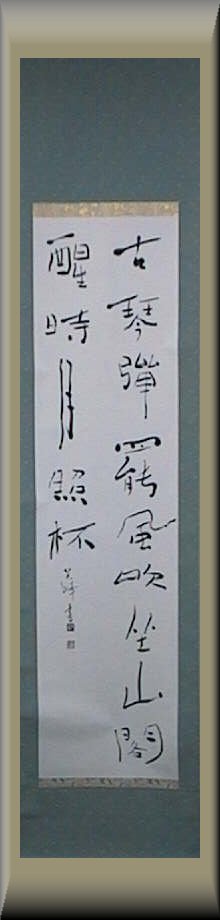 古琴彈罷風吹坐山閣
醒時月照杯